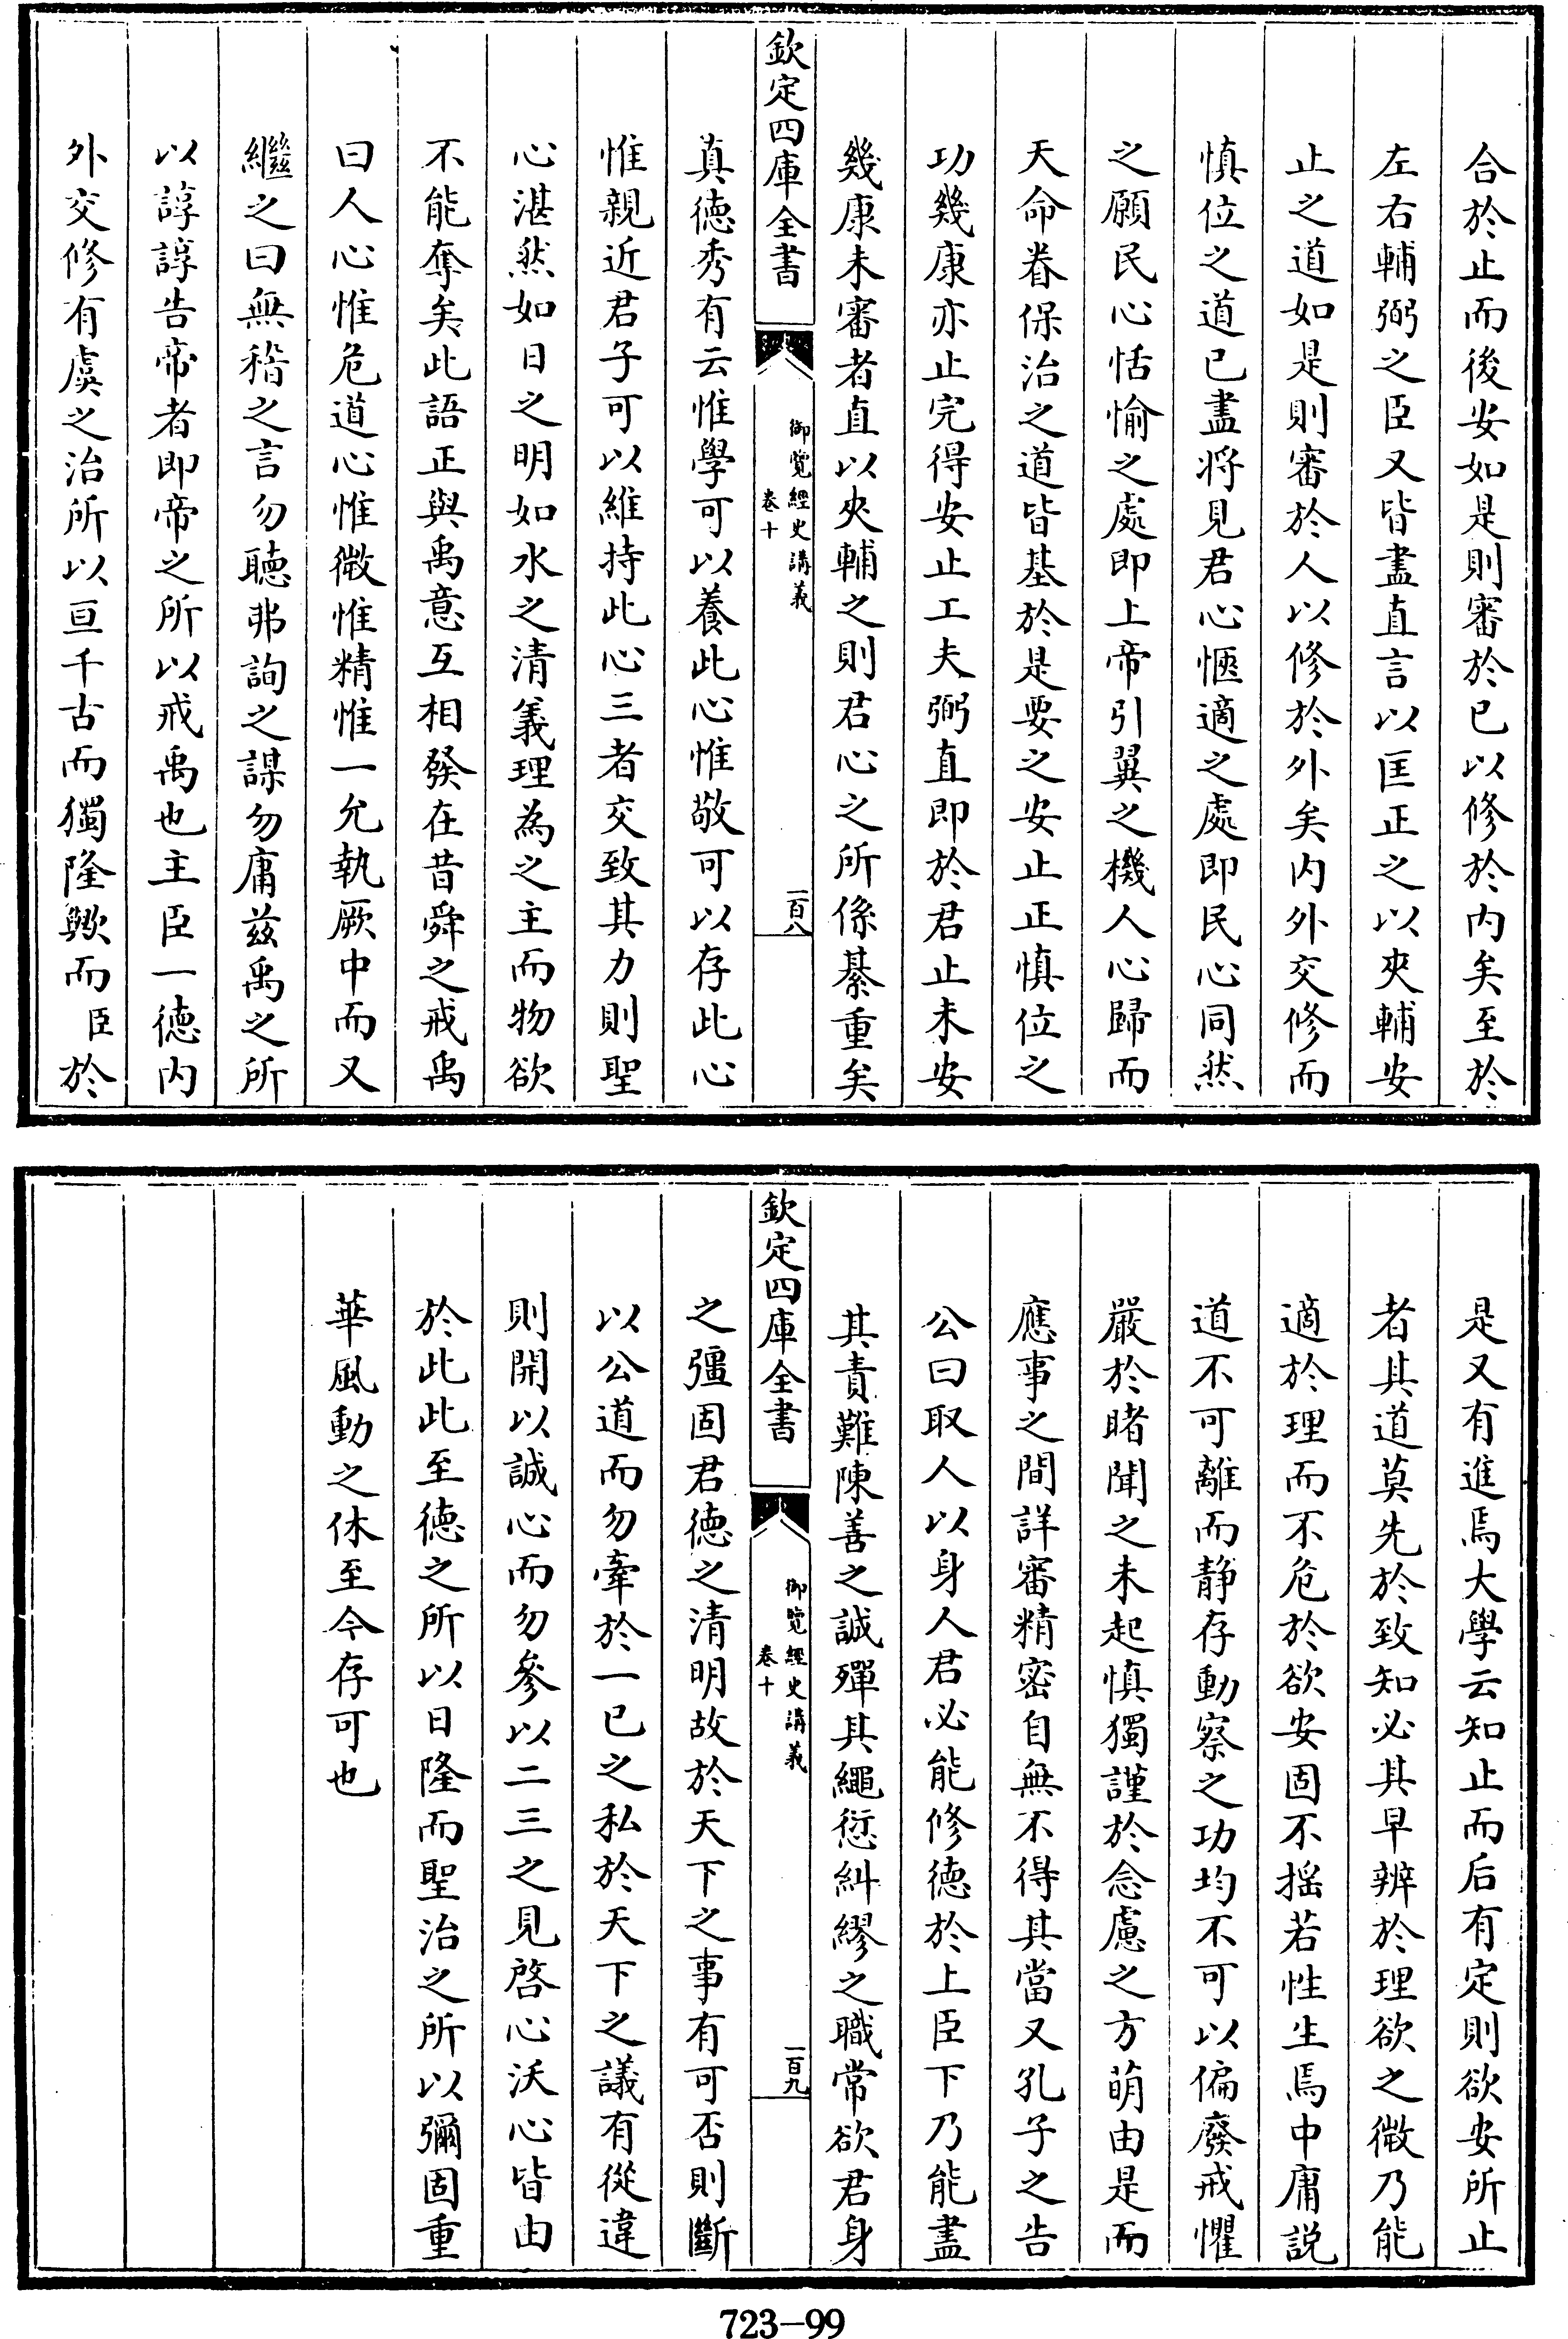 合於止而後安如是則審於已以修於内矣至於
左右輔弼之臣又皆盡直言以匡正之以夾輔安
止之道如是則審於人以修於外矣内外交修而
慎位之道已盡將見君心愜適之處即民心同然
之願民心恬愉之處即上帝引翼之機人心歸而
天命眷保治之道皆基於是要之安止正慎位之
功幾康亦止完得安止工夫弼直即於君止未安
幾康未審者直以夾輔之則君心之所係綦重矣
欽定四庫全書
御覽經史講義
卷十
一百八
真徳秀有云惟學可以養此心惟敬可以存此心
惟親近君子可以維持此心三者交致其力則聖
心湛然如日之明如水之清義理為之主而物欲
不能奪矣此語正與禹意互相發在昔舜之戒禹
曰人心惟危道心惟微惟精惟一允執厥中而又
繼之曰無稽之言勿聽弗詢之謀勿庸兹禹之所
以諄諄告帝者即帝之所以戒禹也主臣一徳内
外交修有虞之治所以亘千古而獨隆歟而臣於
是又有進焉大學云知止而后有定則欲安所止
者其道莫先於致知必其早辨於理欲之微乃能
適於理而不危於欲安固不揺若性生焉中庸説
道不可離而静存動察之功均不可以偏廢戒懼
嚴於睹聞之未起慎獨謹於念慮之方萌由是而
應事之間詳審精密自無不得其當又孔子之告
公曰取人以身人君必能修徳於上臣下乃能盡
其責難陳善之誠殫其繩愆糾繆之職常欲君身
欽定四庫全書
御覽經史講義
卷十
一百九
之彊固君徳之清明故於天下之事有可否則斷
以公道而勿牽於一已之私於天下之議有從違
則開以誠心而勿參以二三之見啓心沃心皆由
於此此至徳之所以日隆而聖治之所以彌固重
華風動之休至今存可也
723-99